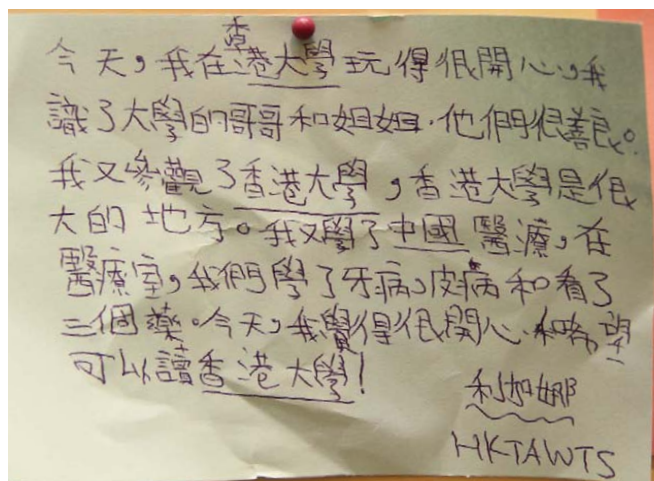 今天，我在香港大學玩得很開心，我
識了大學的哥哥和姐姐．他們很善良。
我又參觀了香港大學，香港大學是很
大的地方。我又學了中國醫療，在
醫療室，我們學了牙病，皮病和看了
三個藥．今天，我覺得很開心．和希望
可以讀香港大學！
利加娜
HKTAWTS